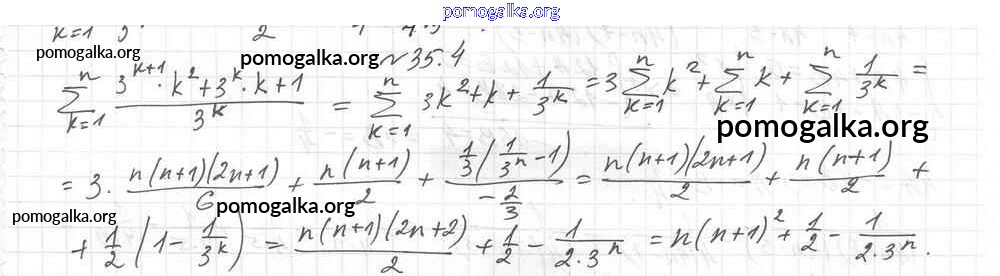 pomogalka.org
k=1 3 2
pomogalka.org pomogalka.org №35.4
\sum_{k=1}^{n} \frac{3^{k+1} \cdot k^2 + 3^k \cdot k + 1}{3^k} = \sum_{k=1}^{n} 3k^2 + k + \frac{1}{3^k} = 3\sum_{k=1}^{n} k^2 + \sum_{k=1}^{n} k + \sum_{k=1}^{n} \frac{1}{3^k} =
pomogalka.org
= 3 \cdot \frac{n(n+1)(2n+1)}{6} + \frac{n(n+1)}{2} + \frac{\frac{1}{3}(\frac{1}{3^n} - 1)}{-\frac{2}{3}} = \frac{n(n+1)(2n+1)}{2} + \frac{n(n+1)}{2} +
pomogalka.org pomogalka.org
+ \frac{1}{2}(1 - \frac{1}{3^k}) = \frac{n(n+1)(2n+2)}{2} + \frac{1}{2} - \frac{1}{2 \cdot 3^n} = n(n+1)^2 + \frac{1}{2} - \frac{1}{2 \cdot 3^n}.